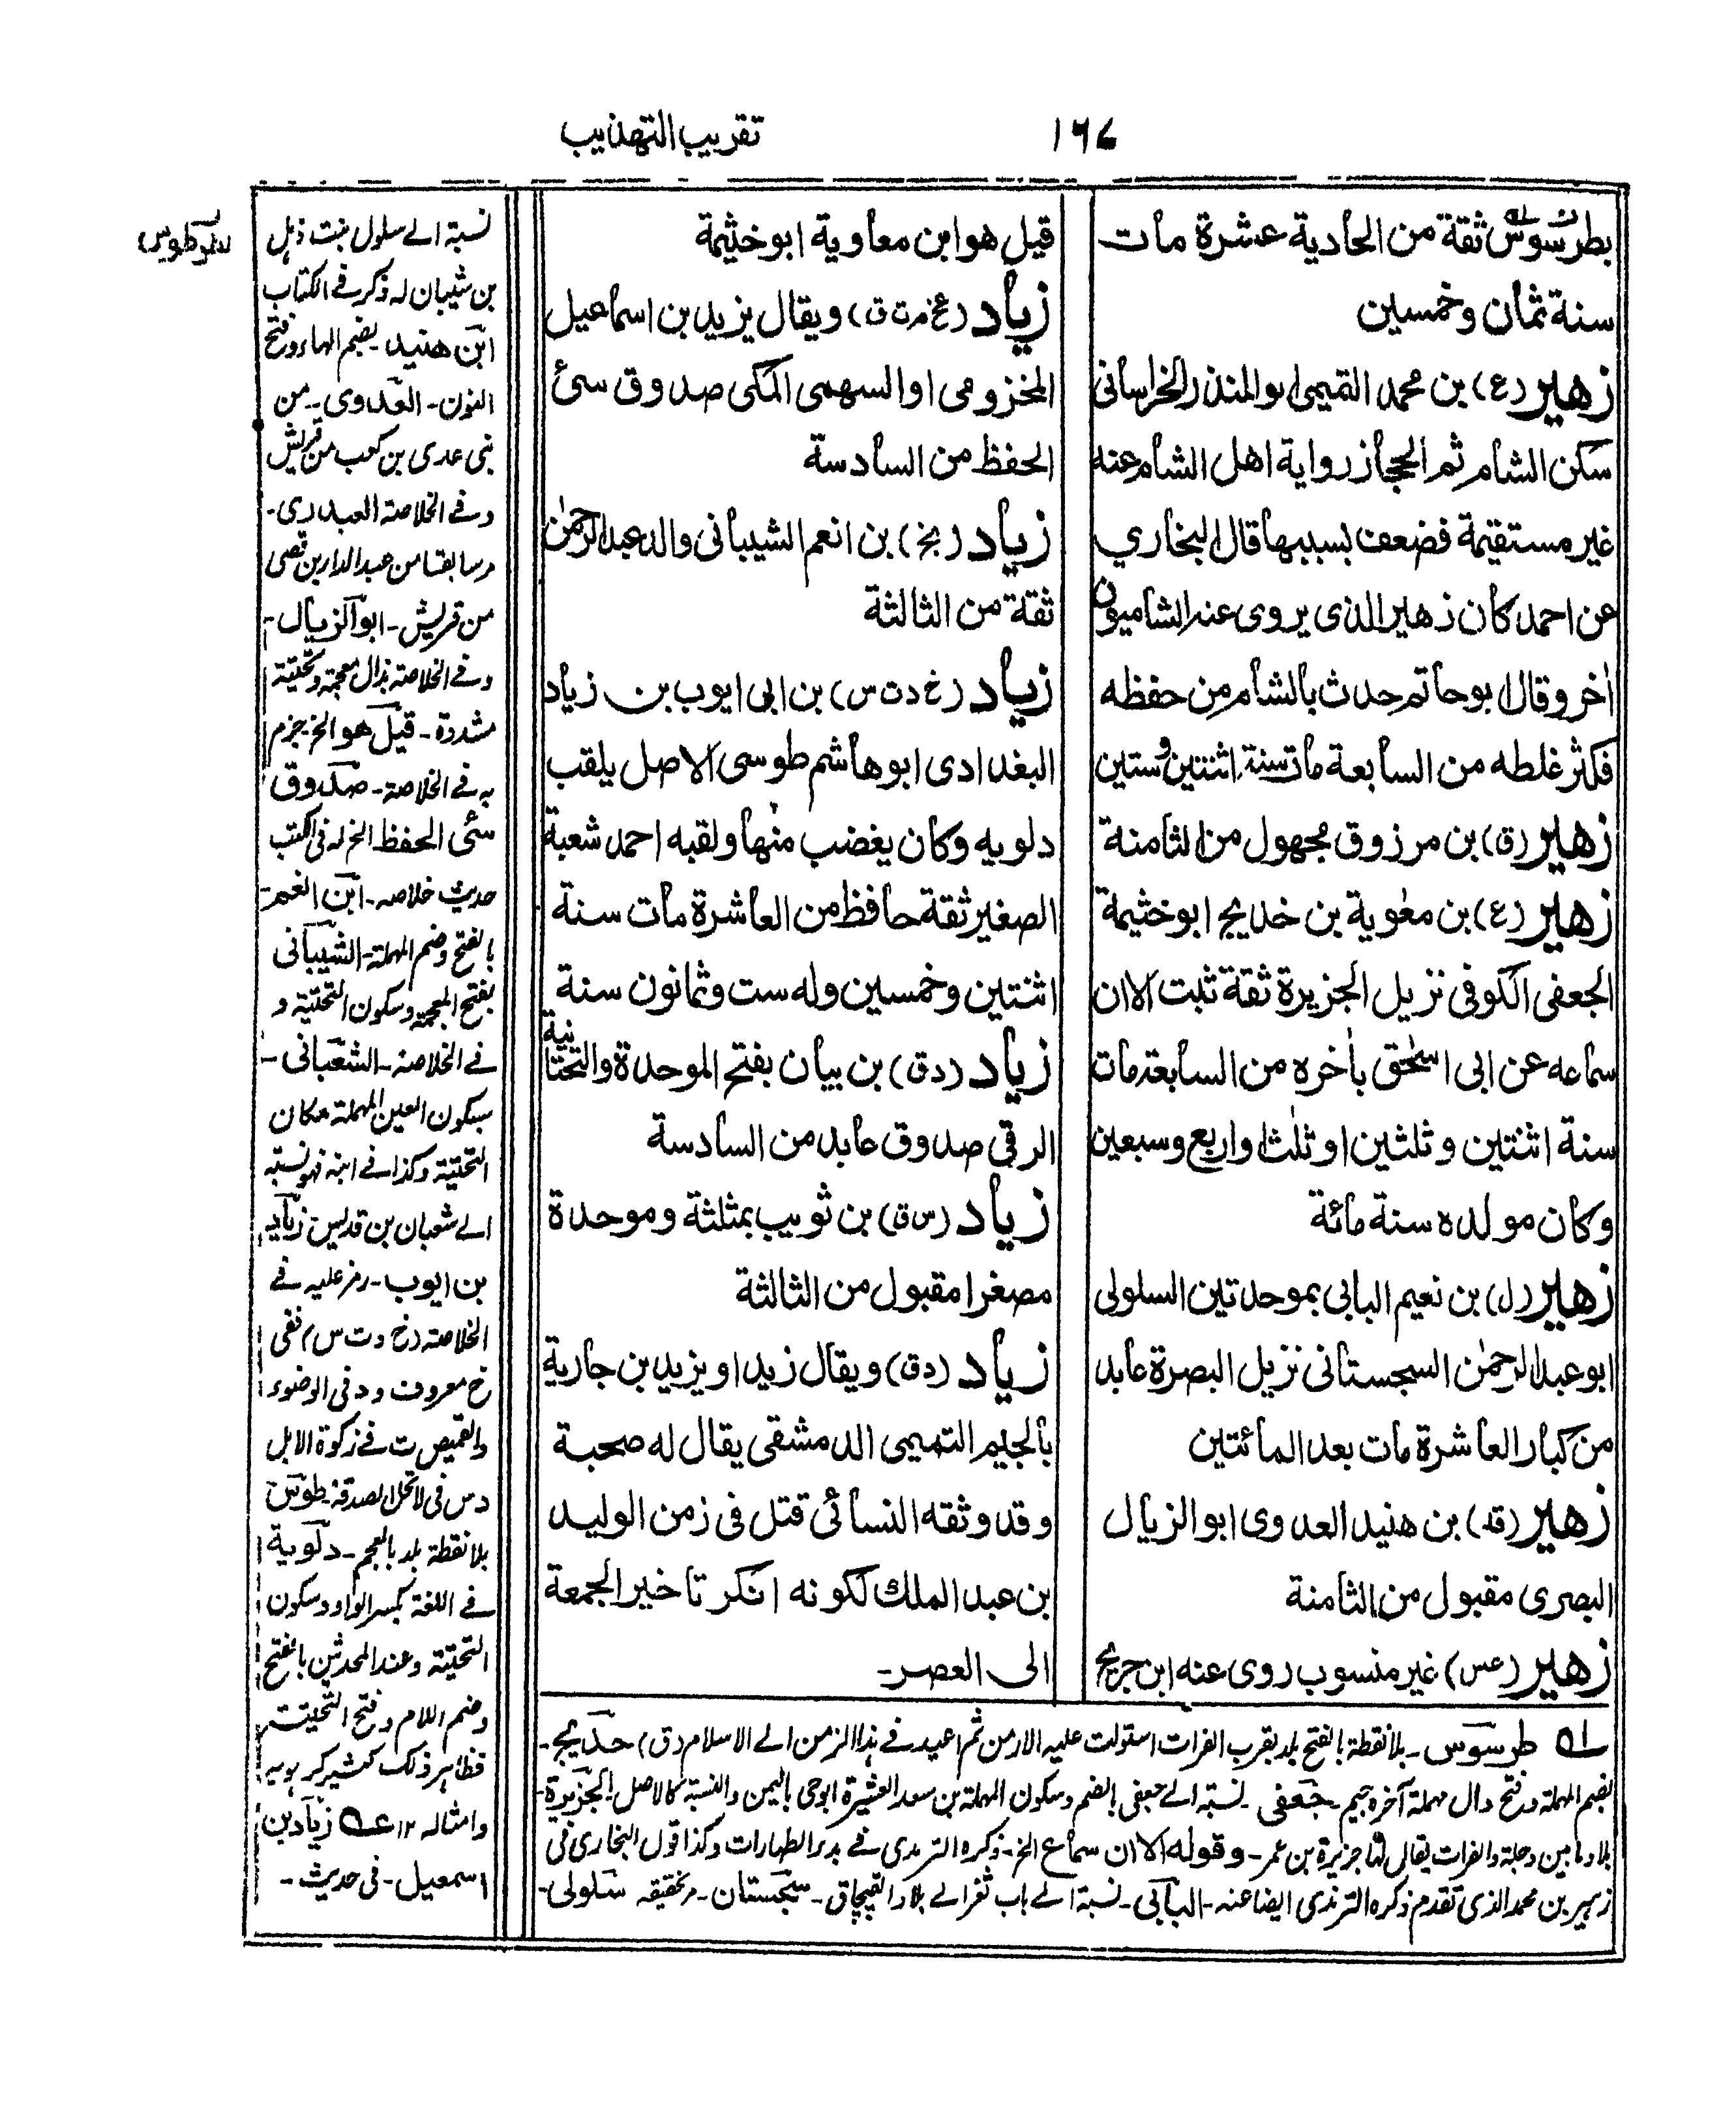 ١٦٧
تقريب التهذيب
بطرسوس ثقة من الحادية عشرة مات
سنة ثمان وخمسين
زهير (ع) بن محمد التميمى ابو المنذر الخراسانى
سكن الشام ثم الحجاز رواية اهل الشام عنه
غير مستقيمة فضعف بسببها قال البخاري
عن احمد كان زهير الذى يروى عنه الشاميون
اٰخر وقال ابو حاتم حدث بالشام من حفظه
فكثر غلطه من السابعة مات سنة اثنتين وستين
زهير (ق) بن مرزوق مجهول من الثامنة
زهير (ع) بن معٰوية بن خديج ابو خثيمة
الجعفى الكوفى نزيل الجزيرة ثقة ثبت الا ان
سماعه عن ابى اسحٰق باٰخره من السابعة مات
سنة اثنتين وثلثين او ثلٰث او اربع وسبعين
وكان مولده سنة مائة
زهير (ل) بن نعيم البابى بموحدتين السلولى
ابو عبد الرحمٰن السجستانى نزيل البصرة عابد
من كبار العاشرة مات بعد المائتين
زهير (قد) بن هنيد العدوى ابو الزيال
البصرى مقبول من الثامنة
زهير (عس) غير منسوب روى عنه ابن جريج
قيل هو ابن معاوية ابو خثيمة
زياد (عخ م ت ق) ويقال يزيد بن اسماعيل
المخزومى او السهمى المكى صدوق سئ
الحفظ من السادسة
زياد (بخ) بن انعم الشيبانى والد عبد الرحمٰن
ثقة من الثالثة
زياد (خ د ت س) بن ابى ايوب بن زياد
البغدادى ابو هاشم طوسى الاصل يلقب
دلويه وكان يغضب منها ولقبه احمد شعبة
الصغير ثقة حافظ من العاشرة مات سنة
اثنتين وخمسين وله ست وثمانون سنة
زياد (د ق) بن بيان بفتح الموحدة والتحتانية
الرقى صدوق عابد من السادسة
زياد (س ق) بن ثويب بمثلثة وموحدة
مصغرا مقبول من الثالثة
زياد (د ق) ويقال زيد او يزيد بن جارية
بالجيم التميمى الدمشقى يقال له صحبة
وقد وثقه النسائى قتل فى زمن الوليد
بن عبد الملك لكونه انكر تاخير الجمعة
الى العصر۔
لـه طرسوس۔ بلا نقطة بالفتح بلد بقرب الفرات استولت عليه الارمن ثم اعيد فے هذا الزمن الے الاسلام (ق) حديج۔
بضم المهملة وفتح دال مهملة آخره جيم۔ جعفى۔ نسبة الے جعفى بالضم وسكون المهملة بن سعد العشيرة ابو حى باليمن والنسبة كالاصل۔ الجزيرة۔
بلاد ما بين دجلة والفرات يقال لها جزيرة بن عمر۔ وقوله الا ان سماع الخ۔ ذكره الترمذى فے بدء الطهارات وكذا قول البخارى فى
زهير بن محمد الذى تقدم ذكره الترمذى ايضا عنه۔ البابى۔ نسبة الے باب ثغر الے بلاد القيچاق۔ سجستان۔ مر تحقيقه سلولى۔
نسبة الے سلول بنت ذهل
بن شيبان له ذكر فے الكتاب
ابن هنيد بضم الهاء وفتح
النون۔ العدوى۔ من
بنى عدى بن كعب من قريش
وفے الخلاصة العبدرى۔
مر سابقا من عبد الدار بن قصى
من قريش۔ ابو الزيال۔
وفے الخلاصة بذال معجمة وتحتية
مشددة۔ قيل هو الخ جزم
به فے الخلاصة۔ صدوق
سئى الحفظ الخ له فى الكتب
حديث خلاصه۔ ابن انعم
بالفتح وضم المهملة۔ الشيبانى
بفتح المعجمة وسكون التحتية و
فے الخلاصة۔ الشعبانى۔
بسكون العين المهملة مكان
التحتية وكذا فے ابنه فهو نسبة
الے شعبان بن قديس۔ زياد
بن ايوب۔ رمز عليه فے
الخلاصة (خ د ت س) ففى
خ معروف ود فى الوضوء
والقميص ت فے زكوة الابل
د س فى لا تحل الصدقة۔ طوس
بلا نقطة بلد بالعجم۔ دلوية
فے اللغة بكسر الواو وسكون
التحتية وعند المحدثين بالفتح
وضم اللام وفتح التحتية
فظاهر ذلك كثير كر بويه
وامثاله ١٢ عـه زياد بن
اسمعيل۔ فى حديث۔